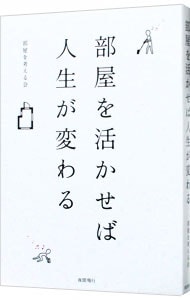 部屋を活かせば
人生が変わる
部屋を考える会
夜間飛行
部屋を活かせば人生が変わる